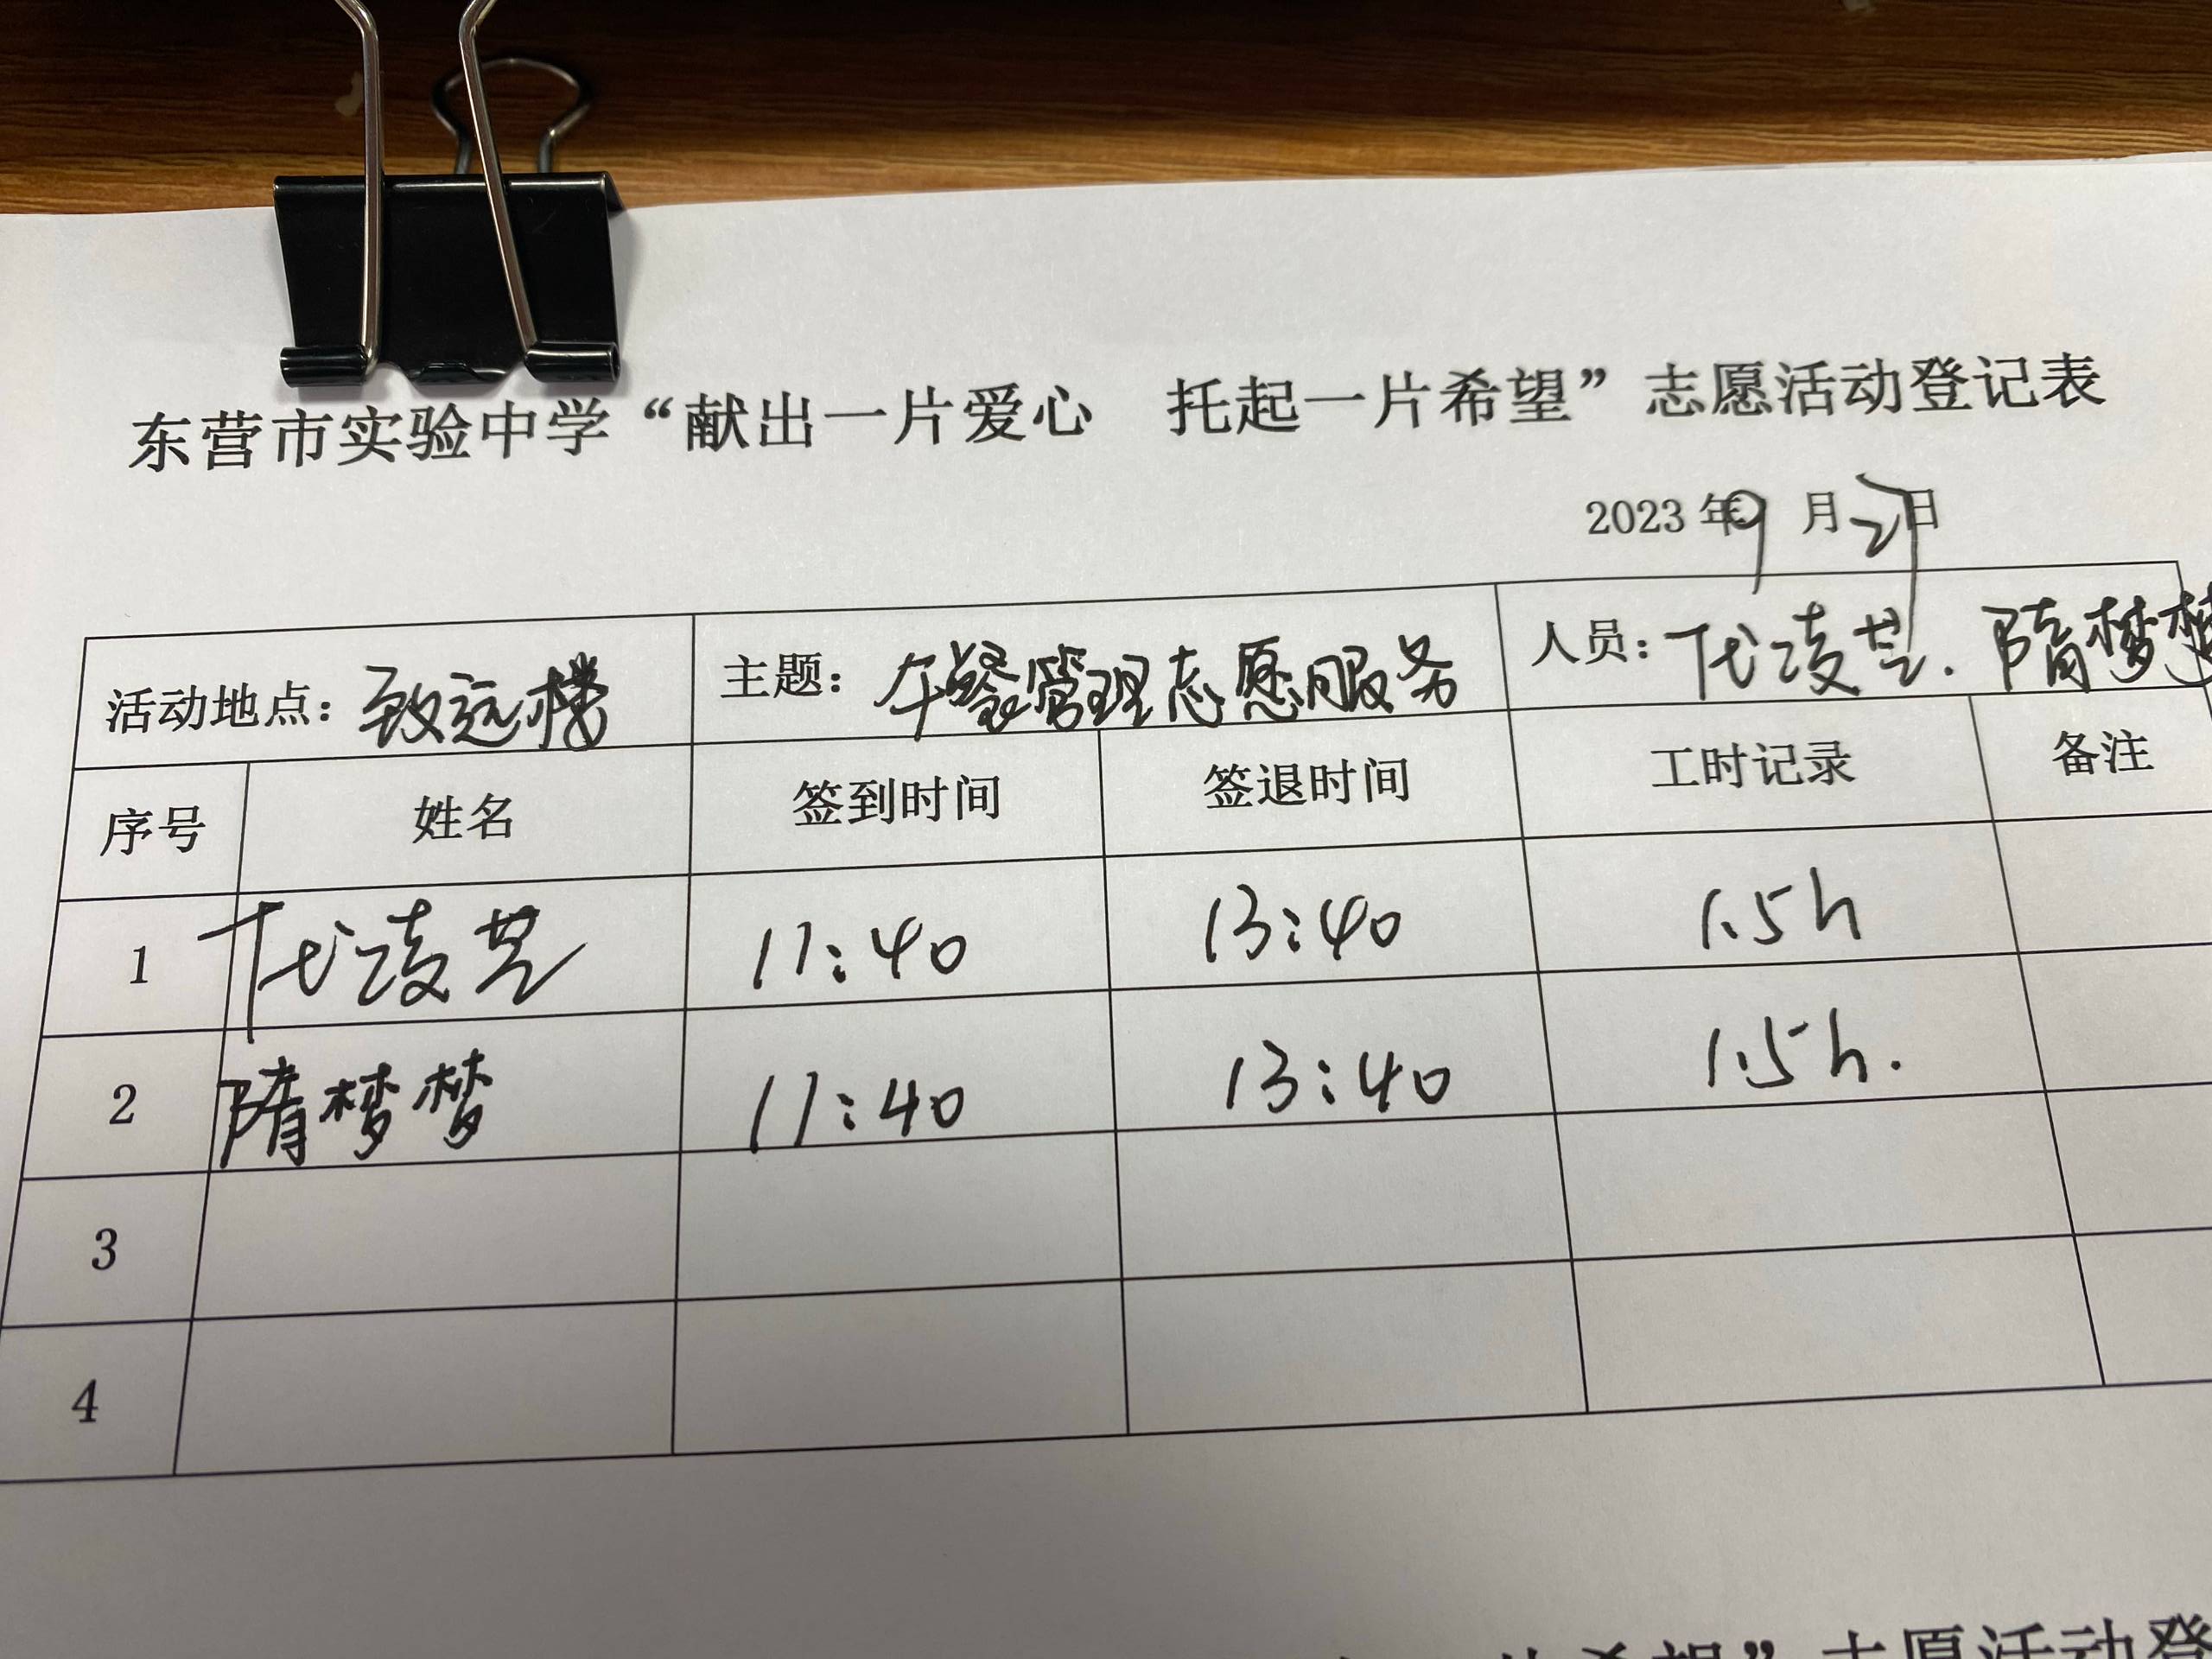 东营市实验中学“献出一片爱心 托起一片希望”志愿活动登记表
2023年9月27日
活动地点：致远楼 主题：午餐管理志愿服务 人员：代凌芸.隋梦梦
序号 姓名 签到时间 签退时间 工时记录 备注
1 代凌芸 11:40 13:40 1.5h
2 隋梦梦 11:40 13:40 1.5h.
3
4
片希望”志愿活动登